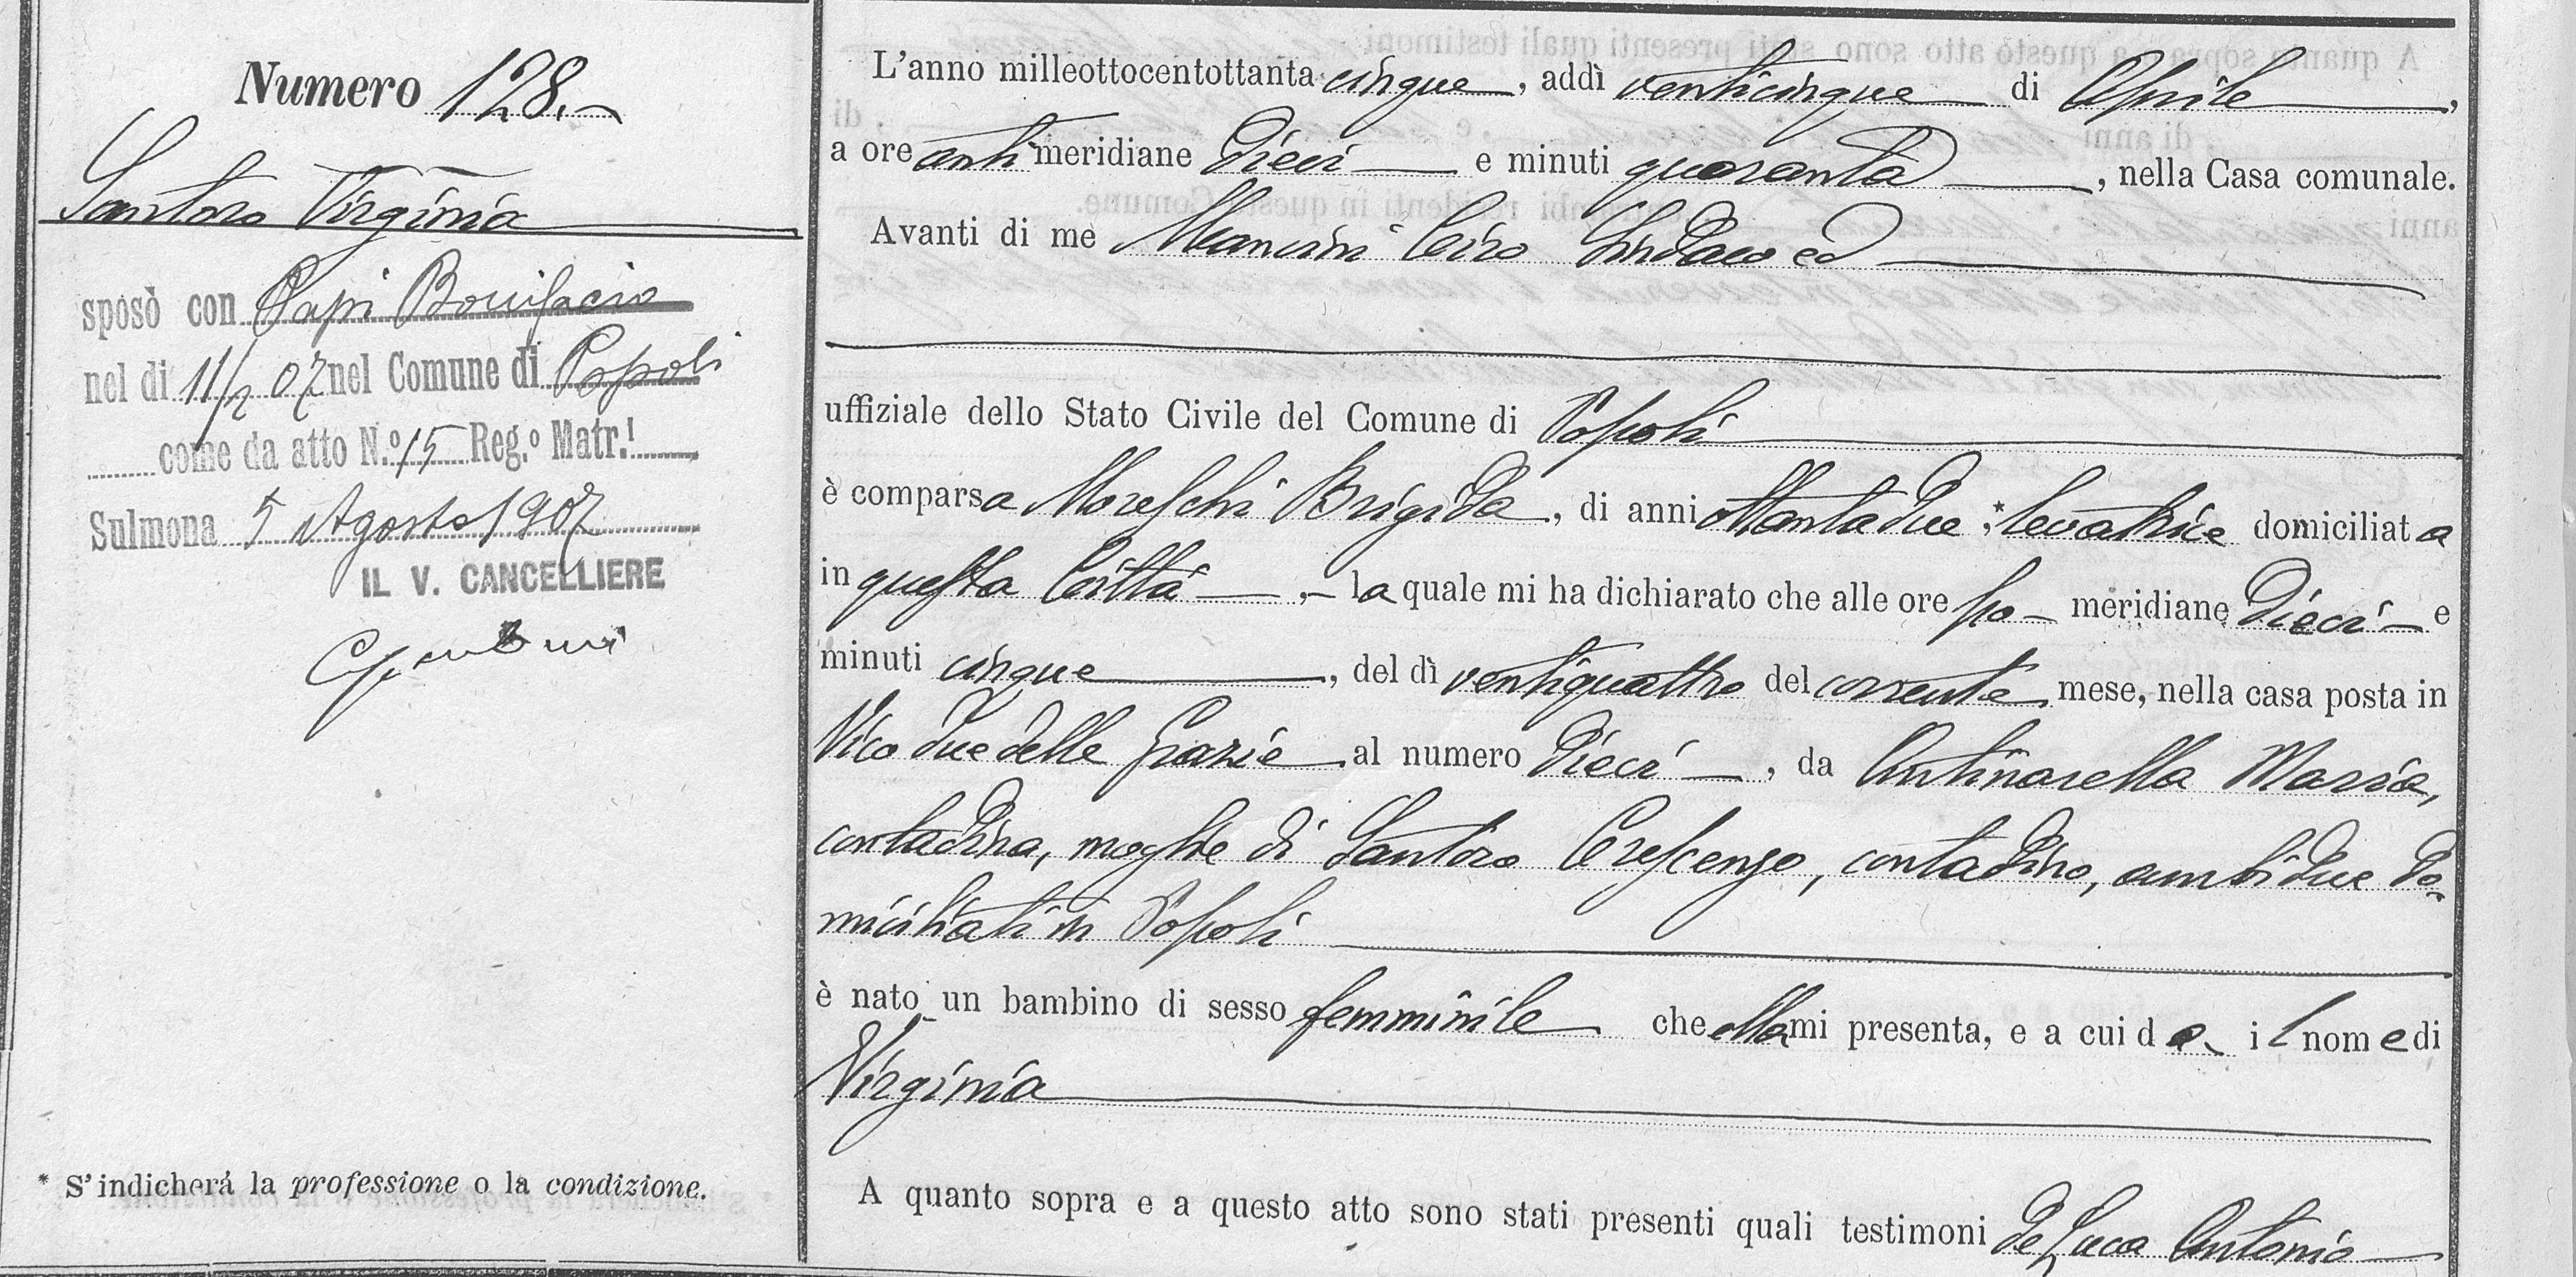 Numero 128.
Santoro Virginia
sposò con Papi Bonifacio
nel di 11/2 07 nel Comune di Popoli
come da atto N.º 15 Reg.º Matr.!
Sulmona 5 Agosto 1907
IL V. CANCELLIERE
* S'indicherà la professione o la condizione.
L'anno milleottocentottanta cinque, addì venticinque di Aprile,
a ore anti meridiane dieci e minuti quaranta, nella Casa comunale.
Avanti di me Mancini Ciro Sindaco ed
uffiziale dello Stato Civile del Comune di Popoli
è comparsa Moreschi Brigida, di anni ottantadue,* levatrice domiciliata
in questa Città, la quale mi ha dichiarato che alle ore po meridiane dieci e
minuti cinque, del dì ventiquattro del corrente mese, nella casa posta in
Vico due delle Grazie al numero dieci, da Antinarella Maria,
contadina, moglie di Santoro Crescenzo, contadino, ambidue do-
miciliati in Popoli
è nato un bambino di sesso femminile che ella mi presenta, e a cui da il nome di
Virginia
A quanto sopra e a questo atto sono stati presenti quali testimoni de Luca Antonio